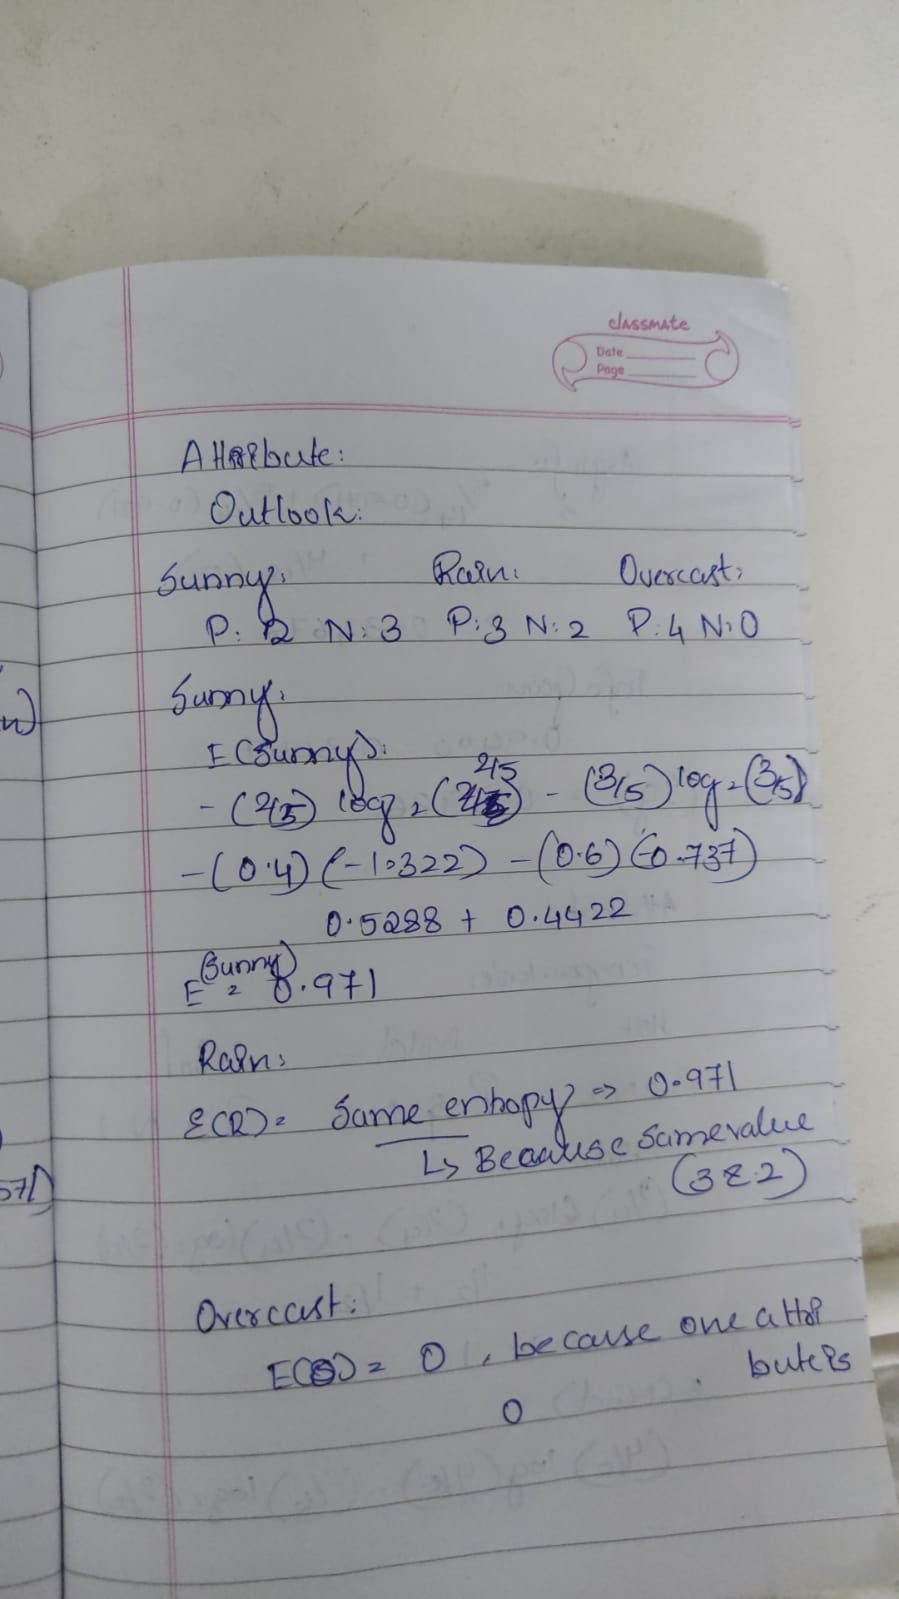 classmate
Date
Page
Attribute:
Outlook:
Sunny: Rain: Overcast:
P: 2 N: 3 P: 3 N: 2 P: 4 N: 0
Sunny:
E(Sunny):
2/5
- (2/5) log₂ ( ) - (3/5) log₂ (3/5)
- (0.4) (-1.322) - (0.6) (-0.737)
0.5288 + 0.4422
(Sunny)
E = 0.971
Rain:
E(R) = Same entropy => 0.971
↳ Because same value
(3 & 2)
Overcast:
E(O) = 0, because one attri
bute is
0
57)